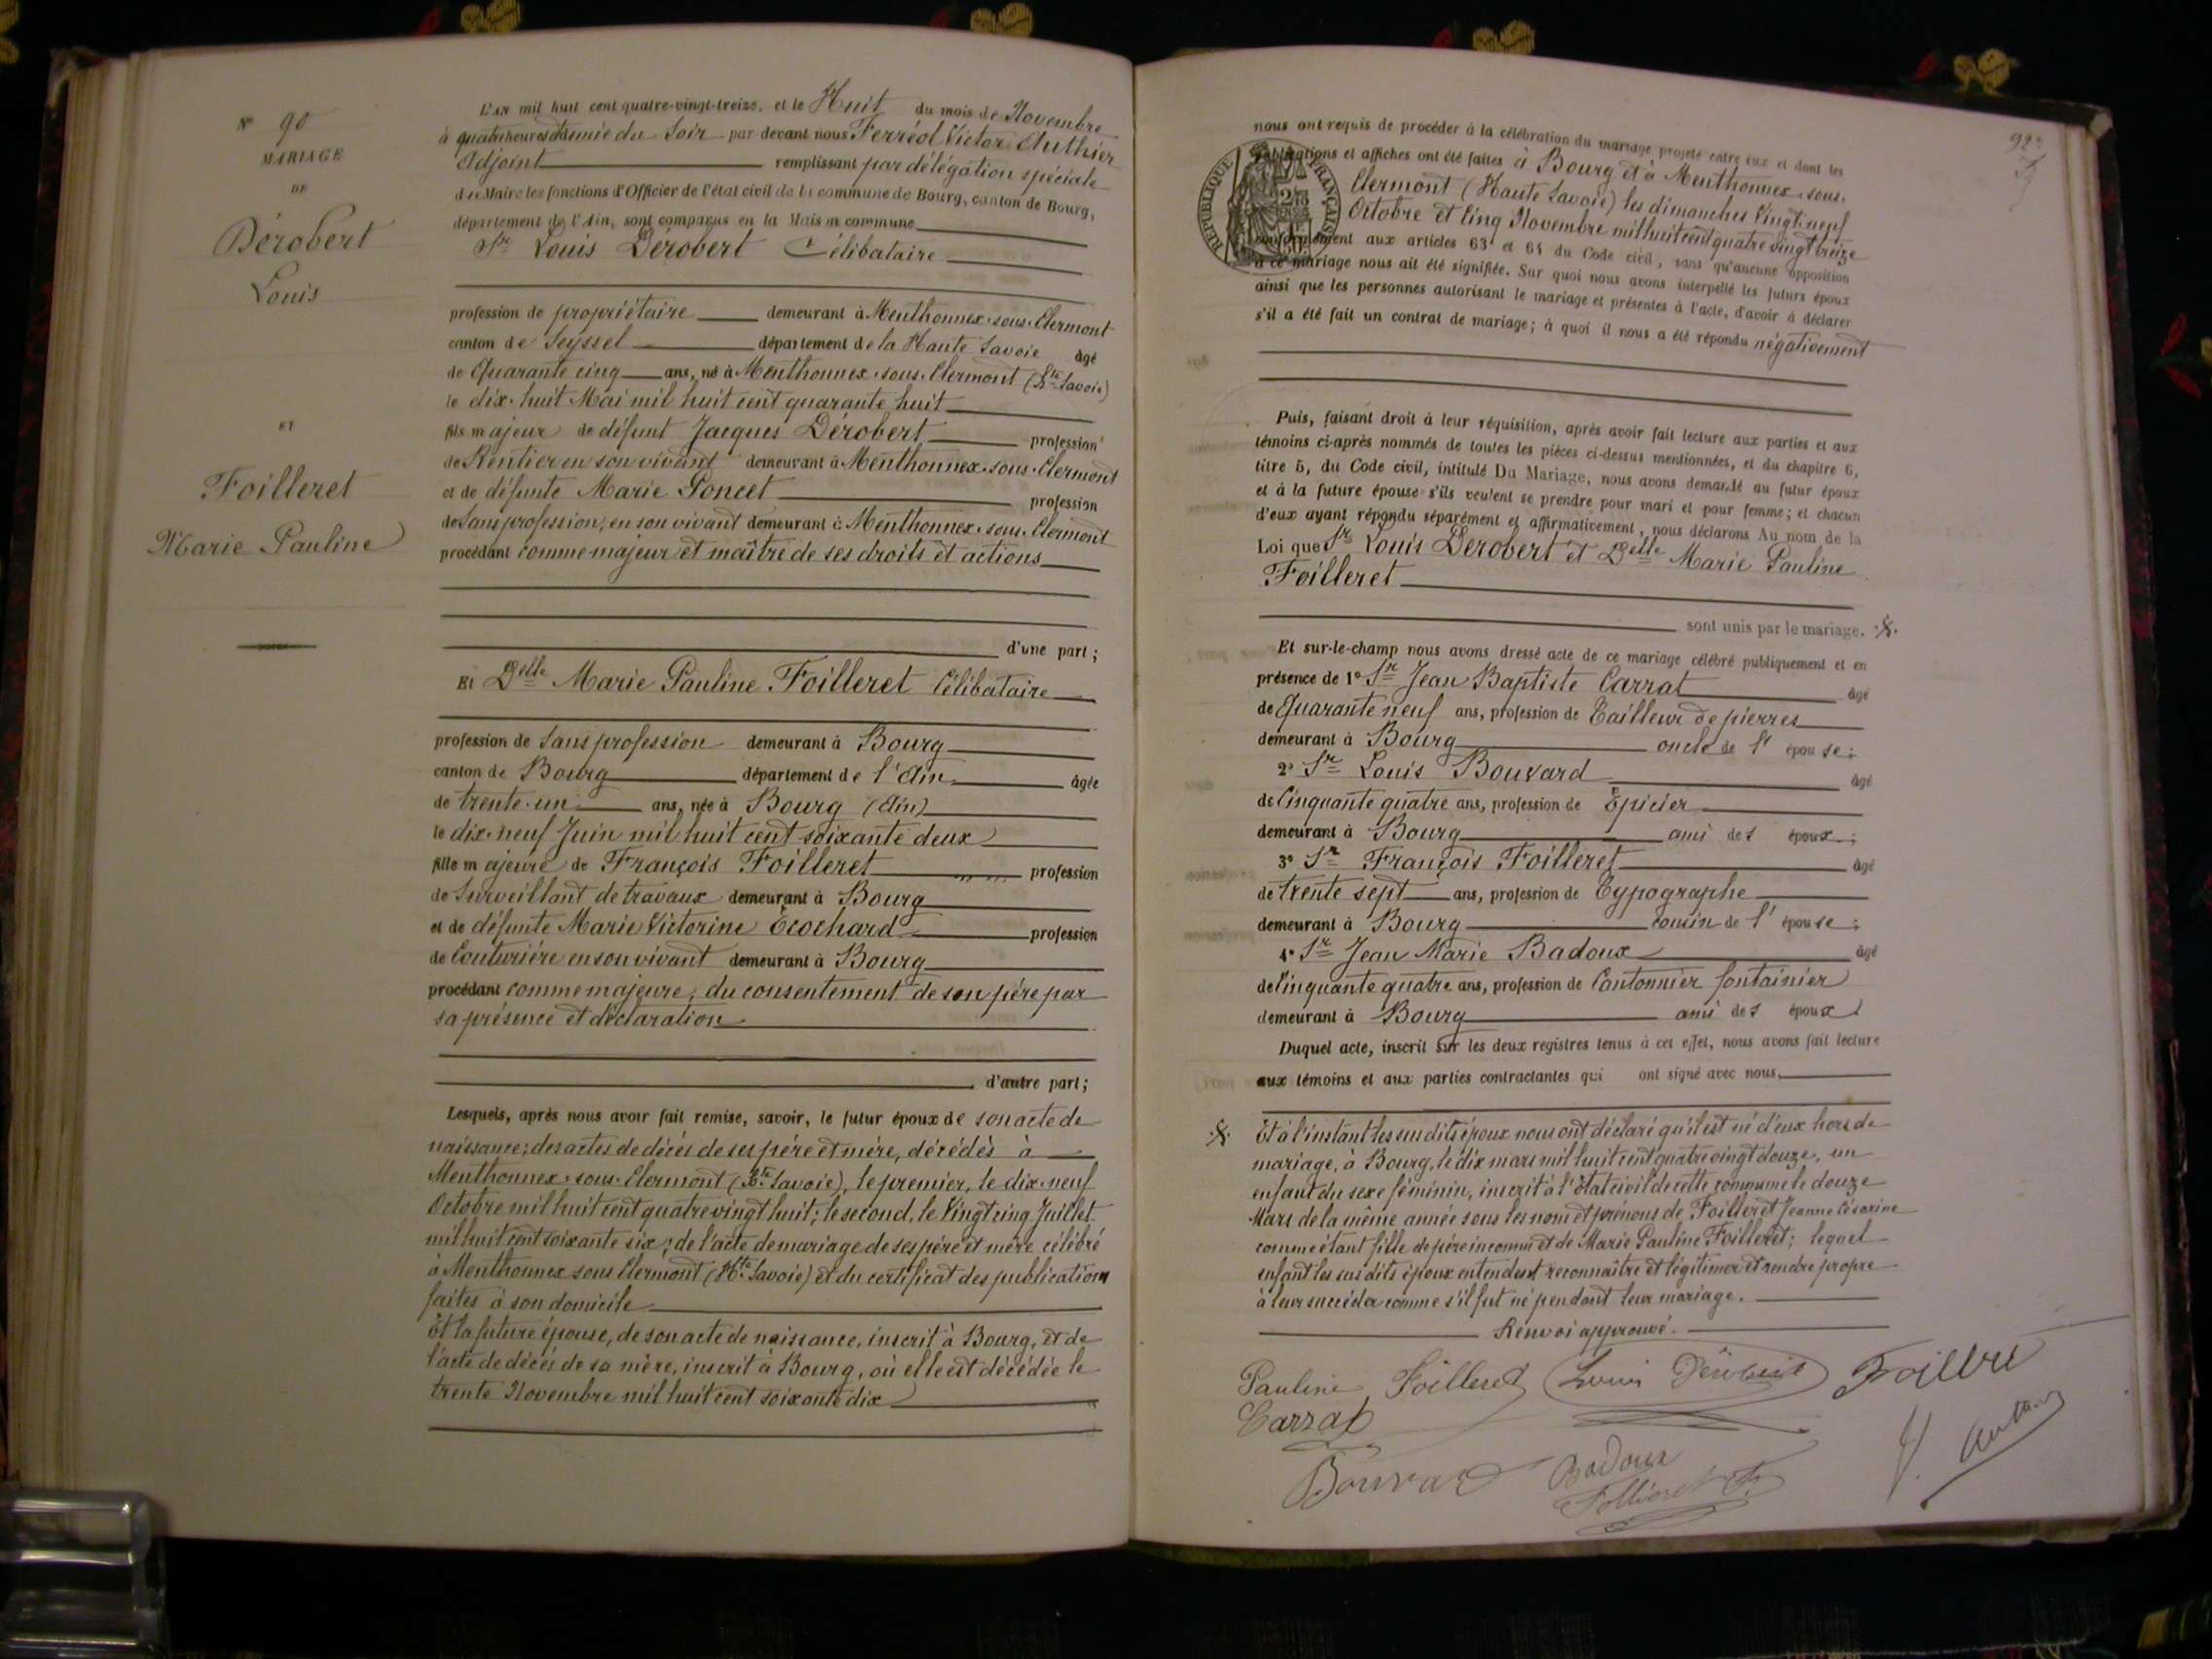 N° 90
MARIAGE
DE
Dérobert
Louis
ET
Foilleret
Marie Pauline
L'AN mil huit cent quatre-vingt-treize, et le Huit du mois de Novembre
à quatre heures et demie du Soir par devant nous Ferréol Victor Authier
Adjoint remplissant par délégation spéciale
du Maire les fonctions d'Officier de l'état civil de la commune de Bourg, canton de Bourg,
département de l'Ain, sont comparus en la Maison commune
Sr Louis Dérobert Célibataire
profession de propriétaire demeurant à Menthonnex-sous-Clermont
canton de Seyssel département de la Haute Savoie âgé
de Quarante cinq ans, né à Menthonnex-sous-Clermont (Hte Savoie)
le dix-huit Mai mil huit cent quarante huit
fils majeur de défunt Jacques Dérobert profession
de Rentier en son vivant demeurant à Menthonnex-sous-Clermont
et de défunte Marie Poncet profession
de Sans profession, en son vivant demeurant à Menthonnex-sous-Clermont
procédant comme majeur et maître de ses droits et actions
d'une part;
Et Delle Marie Pauline Foilleret Célibataire
profession de Sans profession demeurant à Bourg
canton de Bourg département de l'Ain âgée
de trente-un ans, née à Bourg (Ain)
le dix-neuf Juin mil huit cent soixante deux
fille majeure de François Foilleret profession
de Surveillant de travaux demeurant à Bourg
et de défunte Marie Victorine Ecochard profession
de Couturière en son vivant demeurant à Bourg
procédant comme majeure, du consentement de son père par
sa présence et déclaration
d'autre part;
Lesquels, après nous avoir fait remise, savoir, le futur époux de son acte de
naissance; des actes de décès de ses père et mère, décédés à
Menthonnex-sous-Clermont (Hte Savoie), le premier, le dix-neuf
Octobre mil huit cent quatre vingt huit; le second, le Vingt cinq Juillet
mil huit cent soixante six; de l'acte de mariage de ses père et mère célébré
à Menthonnex sous Clermont (Hte Savoie) et du certificat des publications
faites à son domicile
Et la future épouse, de son acte de naissance, inscrit à Bourg, et de
l'acte de décès de sa mère, inscrit à Bourg, où elle est décédée le
trente Novembre mil huit cent soixante dix
92
nous ont requis de procéder à la célébration du mariage projeté entre eux et dont les
publications et affiches ont été faites à Bourg et à Menthonnex-sous-
Clermont (Haute Savoie) les dimanches Vingt-neuf
Octobre et Cinq Novembre mil huit cent quatre vingt treize
conformément aux articles 63 et 64 du Code civil, sans qu'aucune opposition
à ce mariage nous ait été signifiée. Sur quoi nous avons interpellé les futurs époux
ainsi que les personnes autorisant le mariage et présentes à l'acte, d'avoir à déclarer
s'il a été fait un contrat de mariage; à quoi il nous a été répondu négativement
RÉPUBLIQUE FRANÇAISE
Puis, faisant droit à leur réquisition, après avoir fait lecture aux parties et aux
témoins ci-après nommés de toutes les pièces ci-dessus mentionnées, et du chapitre 6,
titre 5, du Code civil, intitulé Du Mariage, nous avons demandé au futur époux
et à la future épouse s'ils veulent se prendre pour mari et pour femme; et chacun
d'eux ayant répondu séparément et affirmativement, nous déclarons Au nom de la
Loi que Sr Louis Dérobert et Delle Marie Pauline
Foilleret
sont unis par le mariage.
Et sur-le-champ nous avons dressé acte de ce mariage célébré publiquement et en
présence de 1° Sr Jean Baptiste Carrat âgé
de Quarante neuf ans, profession de Tailleur de pierres
demeurant à Bourg oncle de l'épouse;
2° Sr Louis Bouvard âgé
de Cinquante quatre ans, profession de Epicier
demeurant à Bourg ami des époux;
3° Sr François Foilleret âgé
de trente sept ans, profession de Typographe
demeurant à Bourg cousin de l'épouse;
4° Sr Jean Marie Badoux âgé
de Cinquante quatre ans, profession de Cantonnier fontainier
demeurant à Bourg ami des époux
Duquel acte, inscrit sur les deux registres tenus à cet effet, nous avons fait lecture
aux témoins et aux parties contractantes qui ont signé avec nous,
Et à l'instant les susdits époux nous ont déclaré qu'il est né d'eux hors de
mariage, à Bourg, le dix mars mil huit cent quatre vingt douze, un
enfant du sexe féminin, inscrit à l'Etat civil de cette commune le douze
Mars de la même année sous les nom et prénoms de Foilleret Jeanne Césarine
comme étant fille de père inconnu et de Marie Pauline Foilleret; lequel
enfant les susdits époux entendent reconnaître et légitimer et rendre propre
à leur succéder comme s'il fut né pendant leur mariage.
Renvoi approuvé.
Pauline Foilleret Louis Dérobert Foilleret
Carrat
Bouvard Badoux